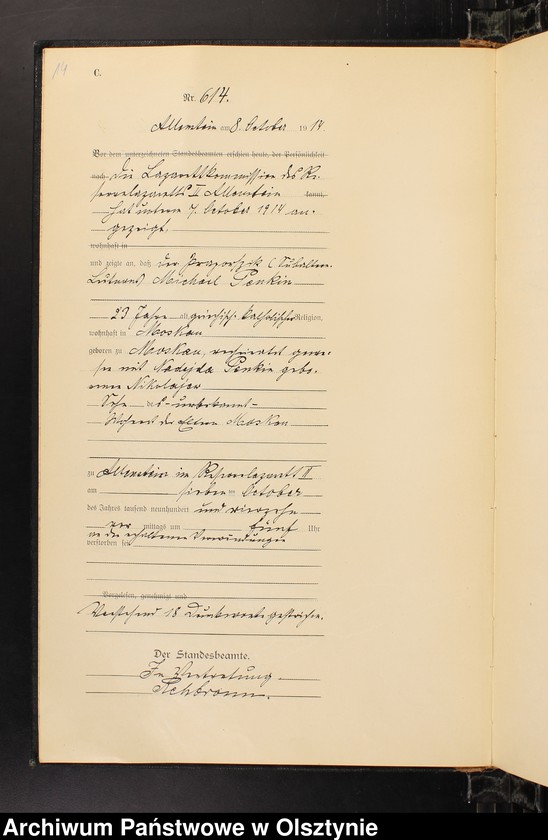 14
C.
Nr. 614.
Allenstein am 8. October 1914.
Vor dem unterzeichneten Standesbeamten erschien heute, der Persönlichkeit
nach die Lazarettkommission des Re-
servelazaretts II Allenstein kannt,
hat unterm 7. October 1914 an-
gezeigt.
wohnhaft in
und zeigte an, daß der Praporschik (Subaltern
Leutnant) Michael Penkin
23 Jahre alt, griechisch-katholischer Religion,
wohnhaft in Moskau
geboren zu Moskau, verheiratet gewe-
sen mit Nadejda Penkin gebo-
renen Nikolajew
Sohn des unbekannt
Wohnort der Eltern Moskau
zu Allenstein im Reservelazarett II
am sieben ten October
des Jahres tausend neunhundert und vierzehn
vor mittags um fünf Uhr
an der erhaltenen Verwundung
verstorben sei.
Vorgelesen, genehmigt und
Vorstehend 18 Druckworte gestrichen.
Der Standesbeamte.
In Vertretung
Archiwum Państwowe w Olsztynie